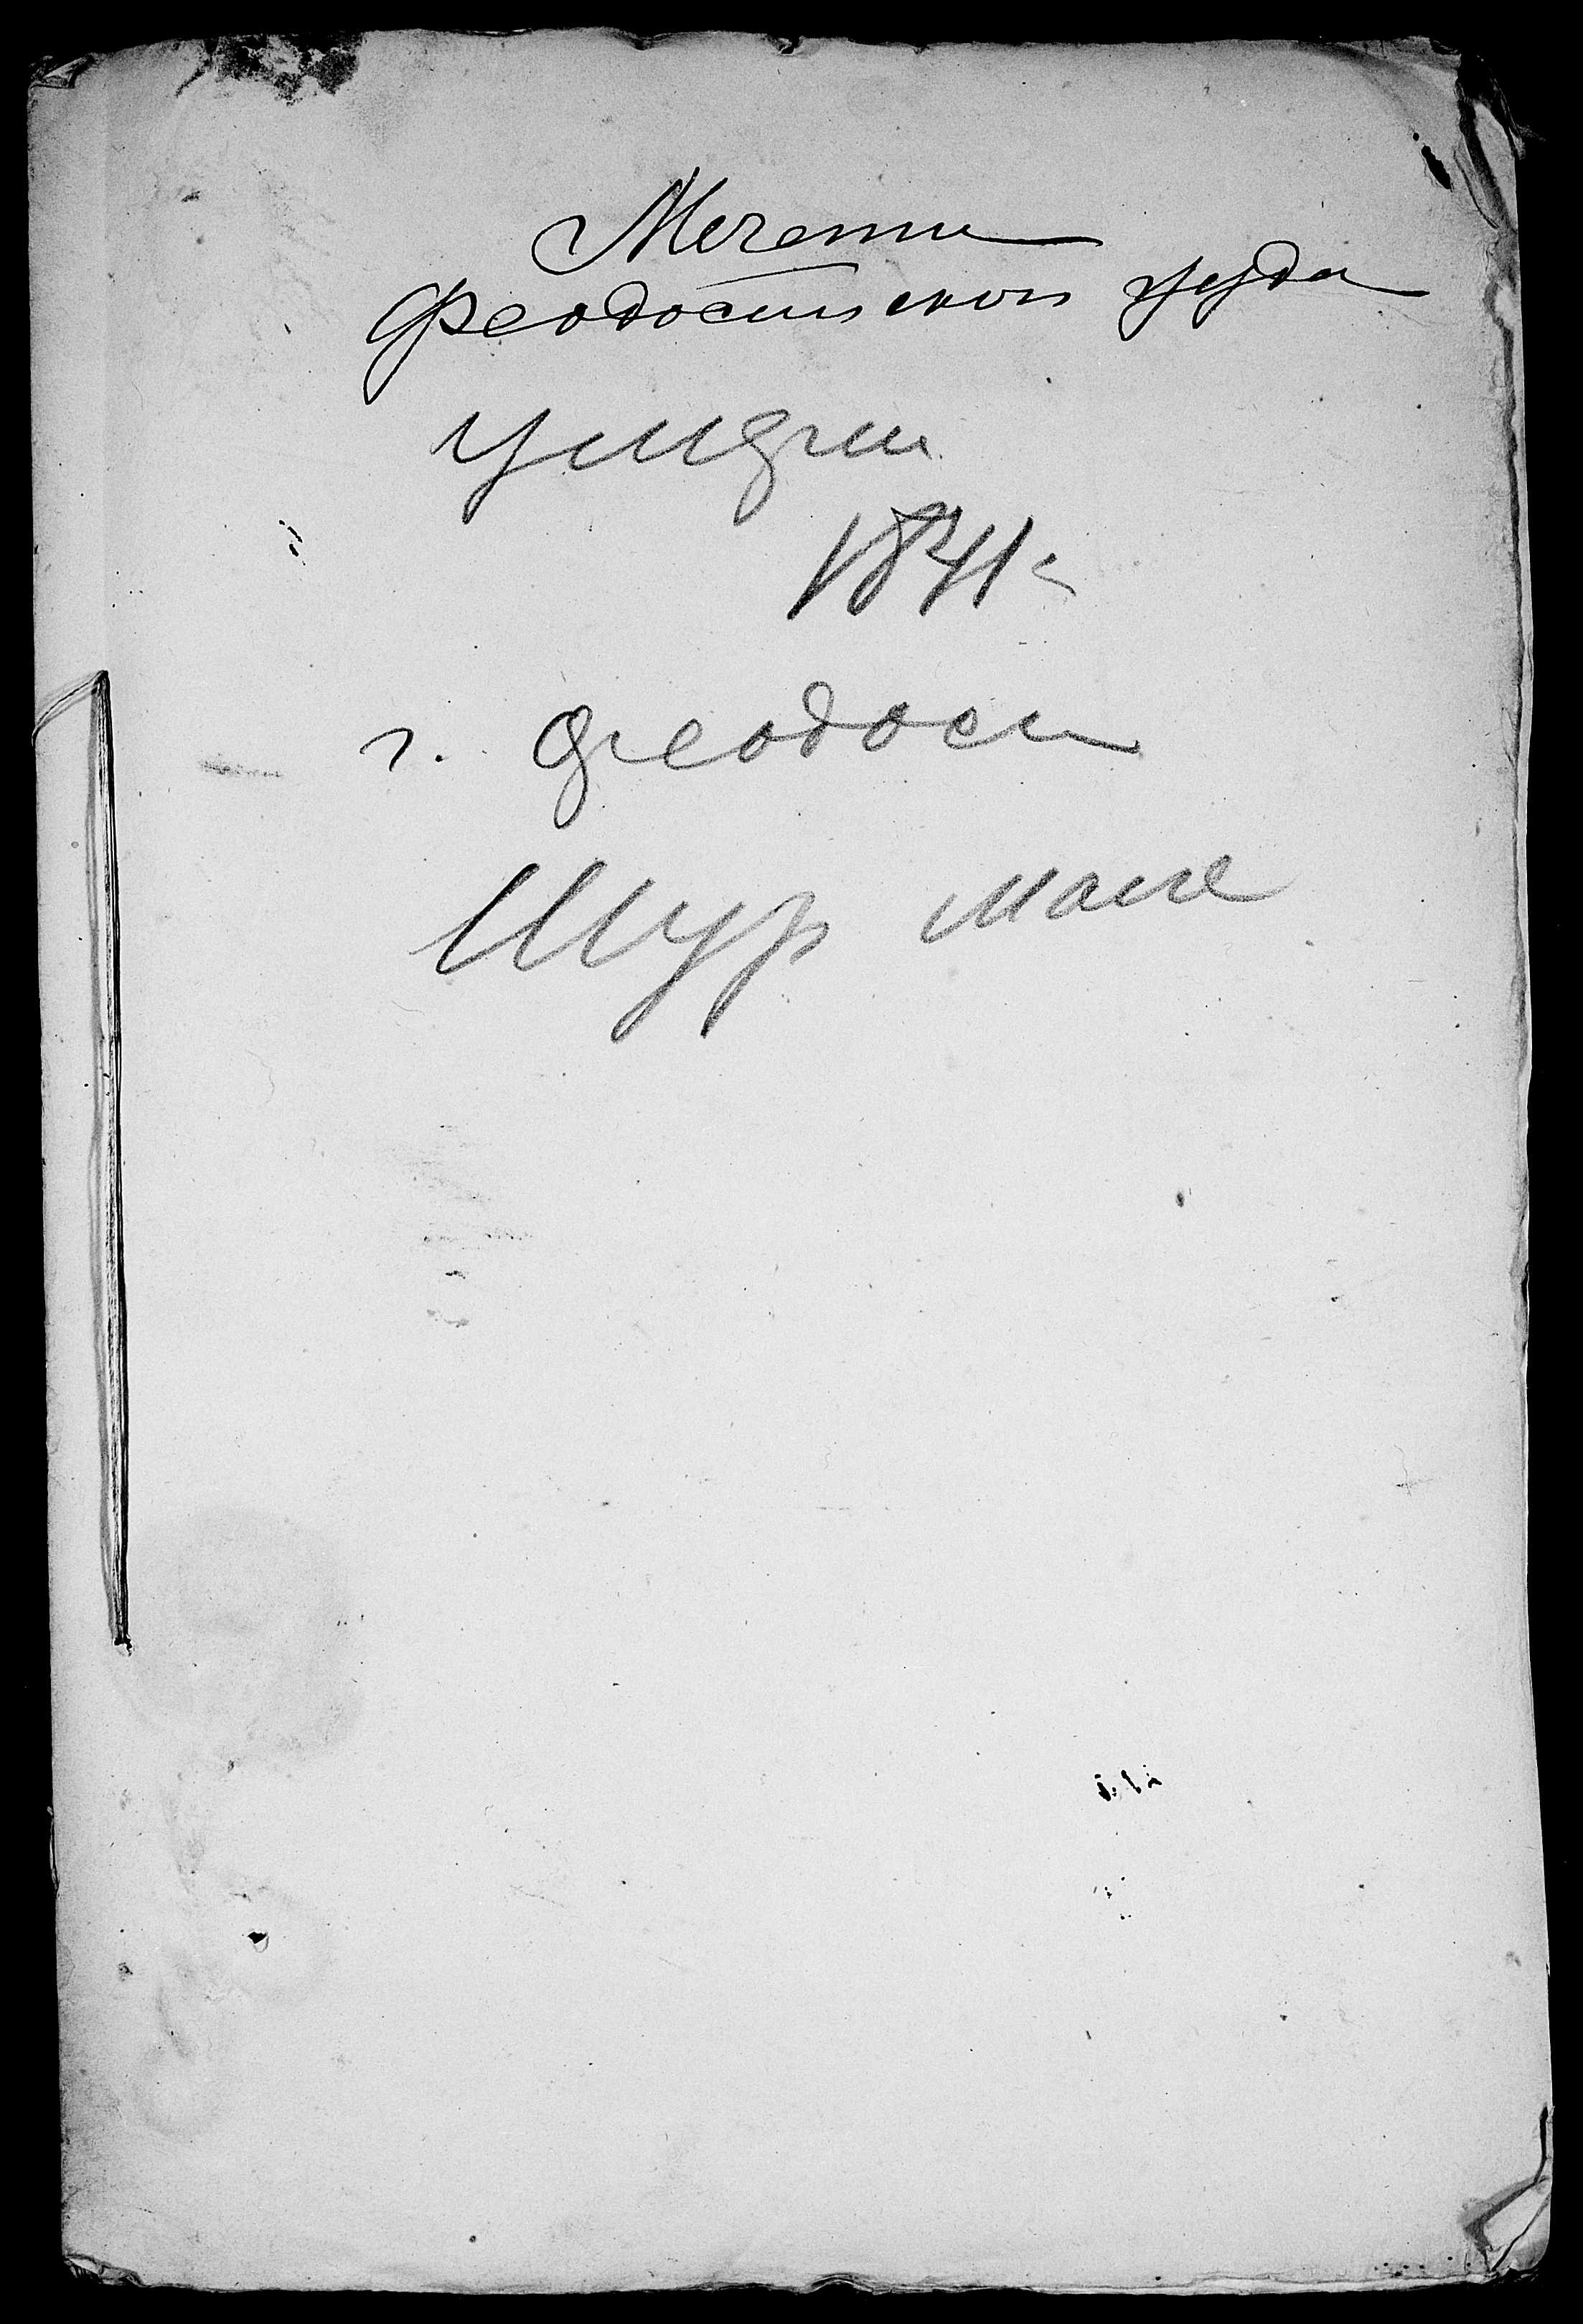 Мечети
Феодосийского уезда
умерш
1841 г
г. Феодоси
Шур мале